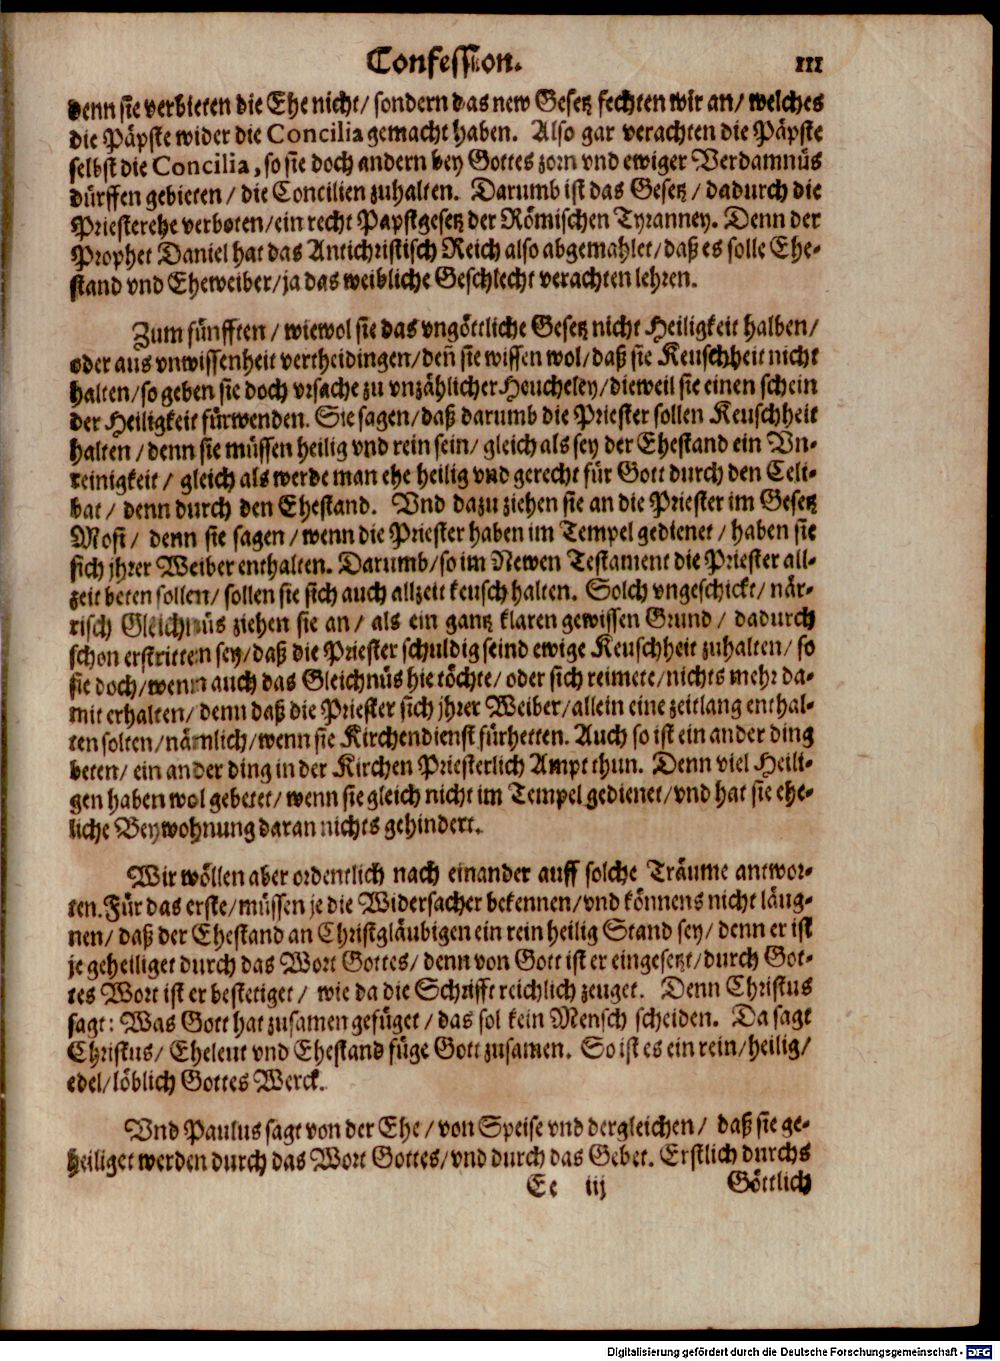 Confession. 111
denn sie verbieten die Ehe nicht/ sondern das new Gesetz fechten wir an/ welches
die Päpste wider die Concilia gemacht haben. Also gar verachten die Päpste
selbst die Concilia, so sie doch andern bey Gottes zorn vnd ewiger Verdamnüs
dürffen gebieten / die Concilien zuhalten. Darumb ist das Gesetz / dadurch die
Priesterehe verboten/ein recht Papstgesetz der Römischen Tyranney. Denn der
Prophet Daniel hat das Antichristisch Reich also abgemahlet/ daß es solle Ehe-
stand vnd Eheweiber/ja das weibliche Geschlecht verachten lehren.
Zum fünfften / wiewol sie das vngöttliche Gesetz nicht Heiligkeit halben/
oder aus vnwissenheit vertheidingen/deñ sie wissen wol/daß sie Keuschheit nicht
halten/so geben sie doch vrsache zu vnzählicher Heucheley/dieweil sie einen schein
der Heiligkeit fürwenden. Sie sagen/daß darumb die Priester sollen Keuschheit
halten / denn sie müssen heilig vnd rein sein/ gleich als sey der Ehestand ein Vn-
reinigkeit / gleich als werde man ehe heilig vnd gerecht für Gott durch den Celi-
bat / denn durch den Ehestand. Vnd dazu ziehen sie an die Priester im Gesetz
Mosi / denn sie sagen / wenn die Priester haben im Tempel gedienet / haben sie
sich jhrer Weiber enthalten. Darumb/so im Newen Testament die Priester all-
zeit beten sollen/ sollen sie sich auch allzeit keusch halten. Solch vngeschickt/ när-
risch Gleichnüs ziehen sie an / als ein gantz klaren gewissen Grund / dadurch
schon erstritten sey/daß die Priester schuldig seind ewige Keuschheit zuhalten/ so
sie doch/wenn auch das Gleichnüs hie töchte/ oder sich reimete/nichts mehr da-
mit erhalten/ denn daß die Priester sich jhrer Weiber/allein eine zeitlang enthal-
ten solten/nämlich/wenn sie Kirchendienst fürhetten. Auch so ist ein ander ding
beten/ ein ander ding in der Kirchen Priesterlich Ampt thun. Denn viel Heili-
gen haben wol gebetet/ wenn sie gleich nicht im Tempel gedienet/vnd hat sie ehe-
liche Beywohnung daran nichts gehindert.
Wir wöllen aber ordentlich nach einander auff solche Träume antwor-
ten. Für das erste/müssen je die Widersacher bekennen/vnd könnens nicht läug-
nen/ daß der Ehestand an Christgläubigen ein rein heilig Stand sey/ denn er ist
je geheiliget durch das Wort Gottes/ denn von Gott ist er eingesetzt/durch Got-
tes Wort ist er bestetiget / wie da die Schrifft reichlich zeuget. Denn Christus
sagt: Was Gott hat zusamen gefüget / das sol kein Mensch scheiden. Da sagt
Christus/ Eheleut vnd Ehestand füge Gott zusamen. So ist es ein rein/heilig/
edel/löblich Gottes Werck.
Vnd Paulus sagt von der Ehe / von Speise vnd dergleichen / daß sie ge-
heiliget werden durch das Wort Gottes/vnd durch das Gebet. Erstlich durchs
Ee iij Göttlich
Digitalisierung gefördert durch die Deutsche Forschungsgemeinschaft - DFG